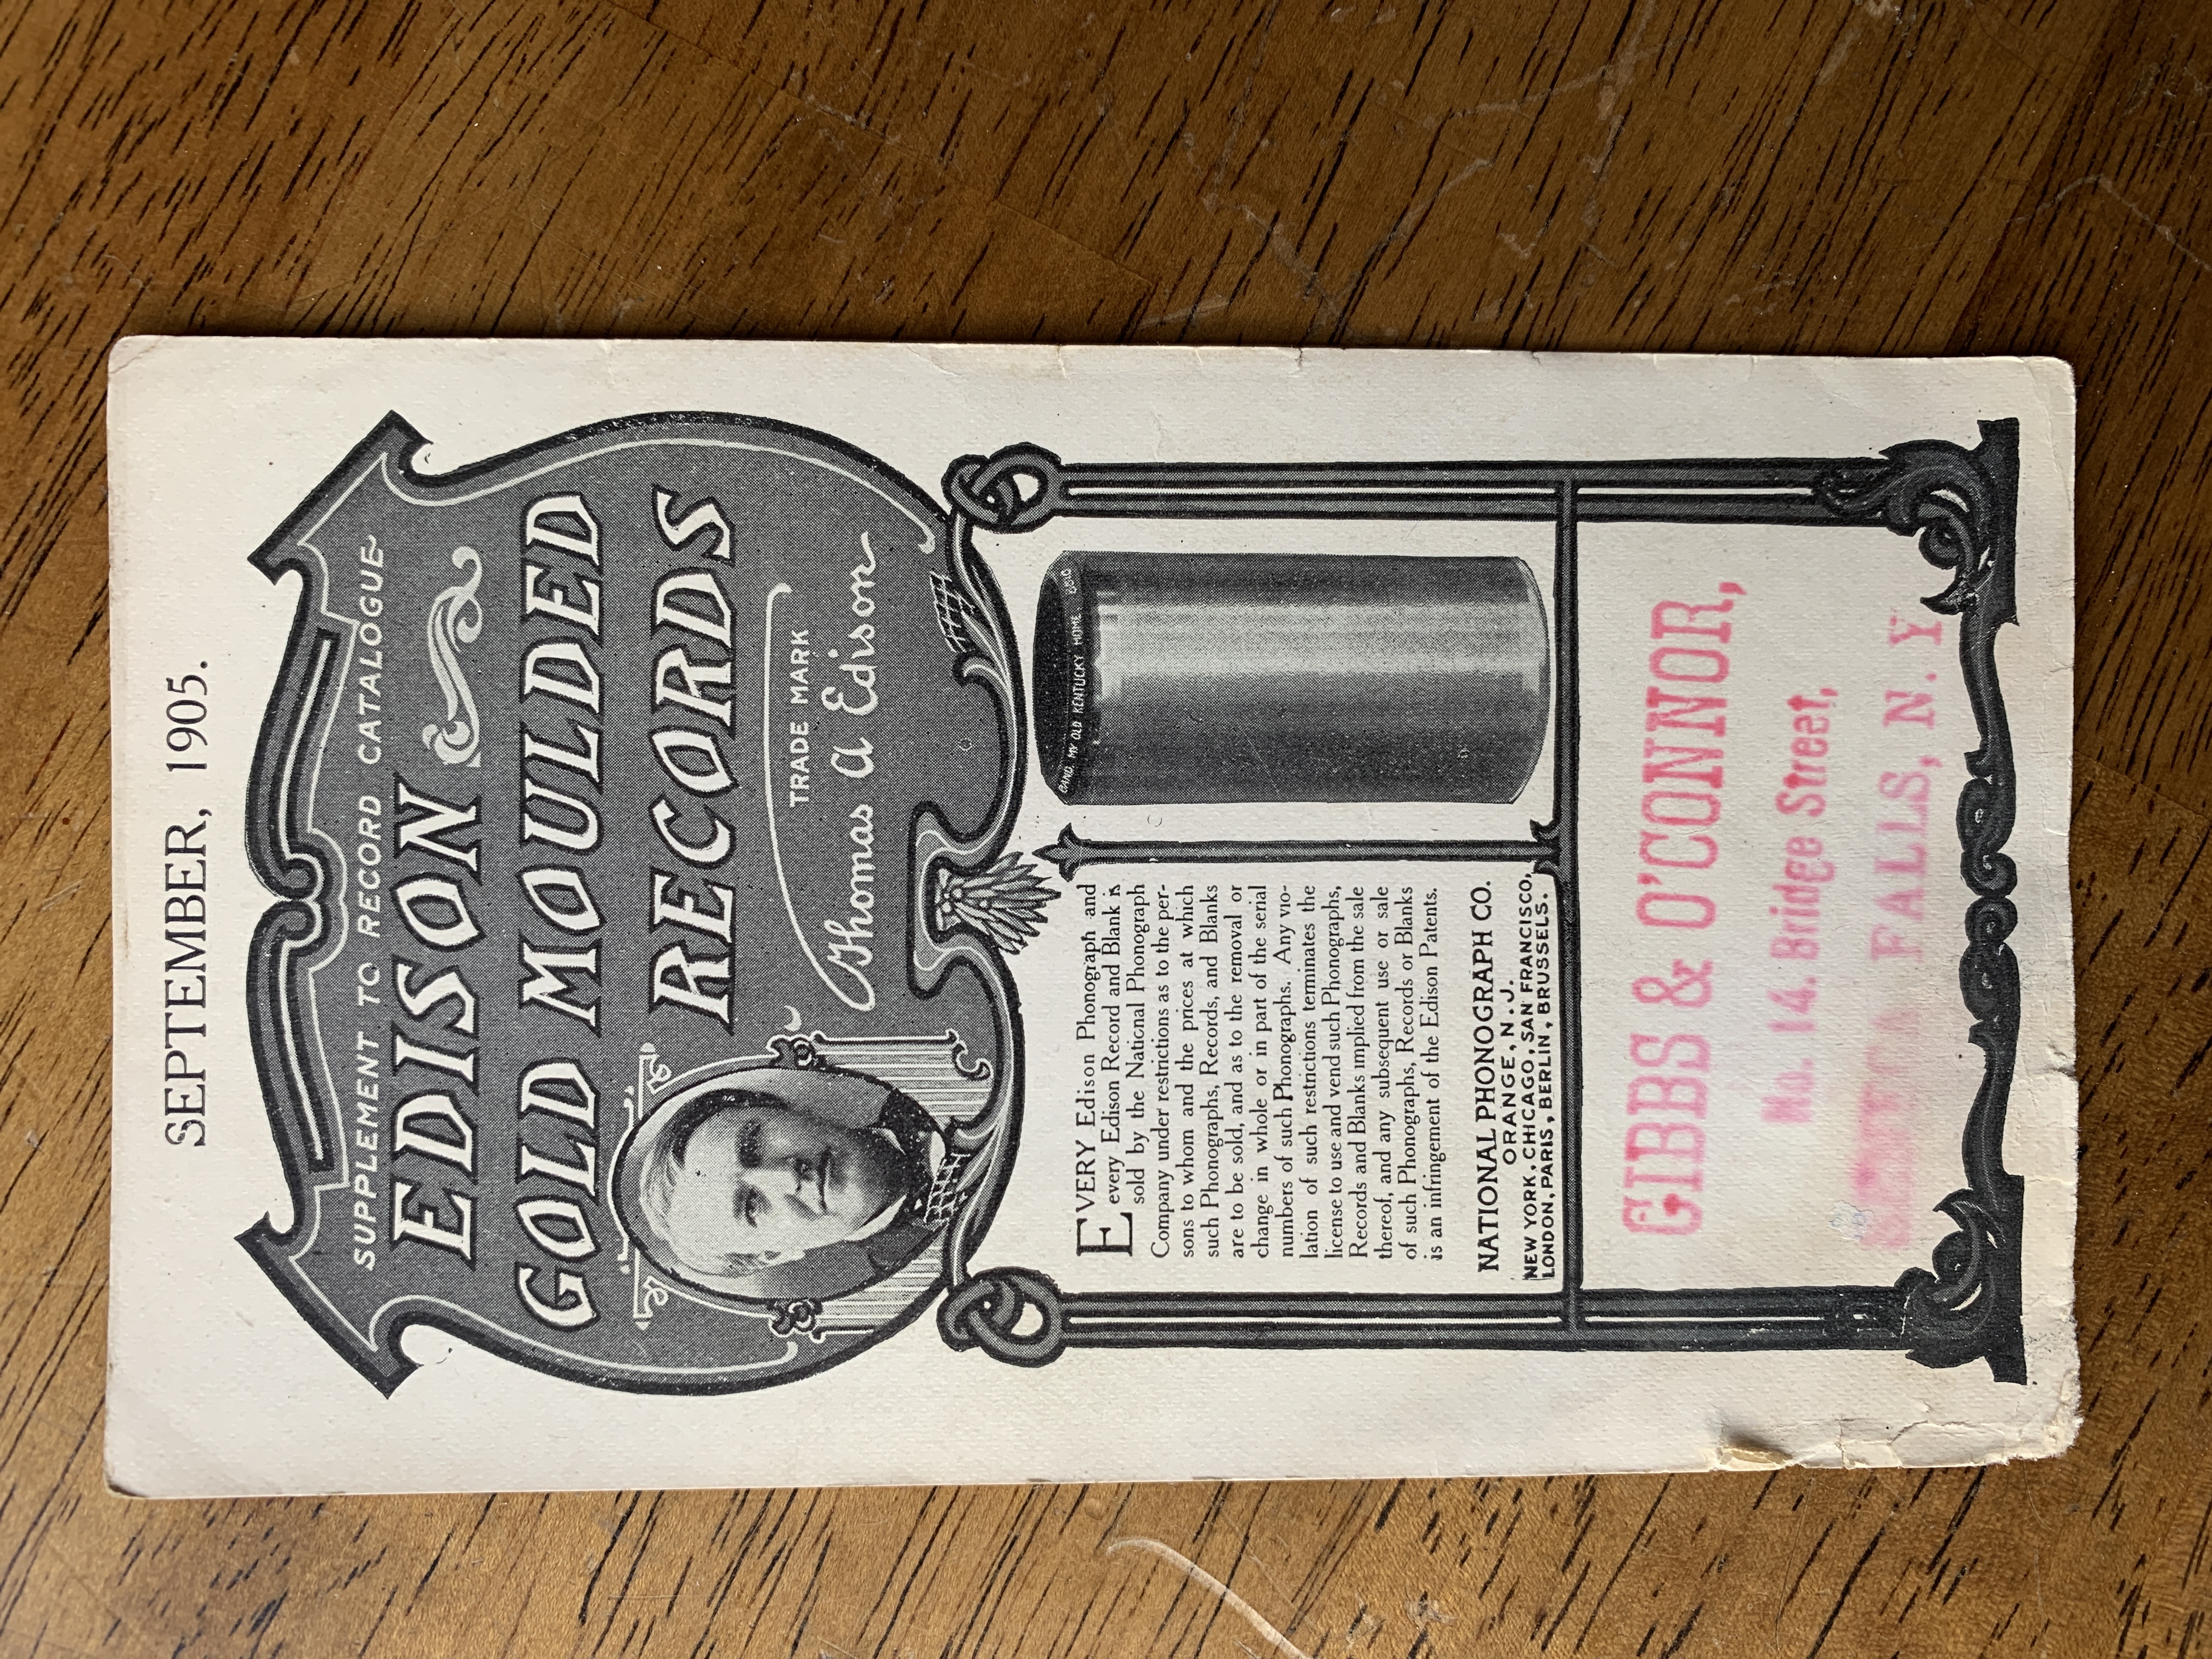 SEPTEMBER, 1905.
SUPPLEMENT TO RECORD CATALOGUE
EDISON
GOLD MOULDED
RECORDS
TRADE MARK
Thomas A Edison
EVERY Edison Phonograph and
every Edison Record and Blank is
sold by the National Phonograph
Company under restrictions as to the per-
sons to whom and the prices at which
such Phonographs, Records, and Blanks
are to be sold, and as to the removal or
change in whole or in part of the serial
numbers of such Phonographs. Any vio-
lation of such restrictions terminates the
license to use and vend such Phonographs,
Records and Blanks implied from the sale
thereof, and any subsequent use or sale
of such Phonographs, Records or Blanks
is an infringement of the Edison Patents.
NATIONAL PHONOGRAPH CO.
ORANGE, N. J.
NEW YORK, CHICAGO, SAN FRANCISCO,
LONDON, PARIS, BERLIN, BRUSSELS.
BAND. MY OLD KENTUCKY HOME
GIBBS & O'CONNOR,
No. 14. Bridge Street,
FALLS, N. Y